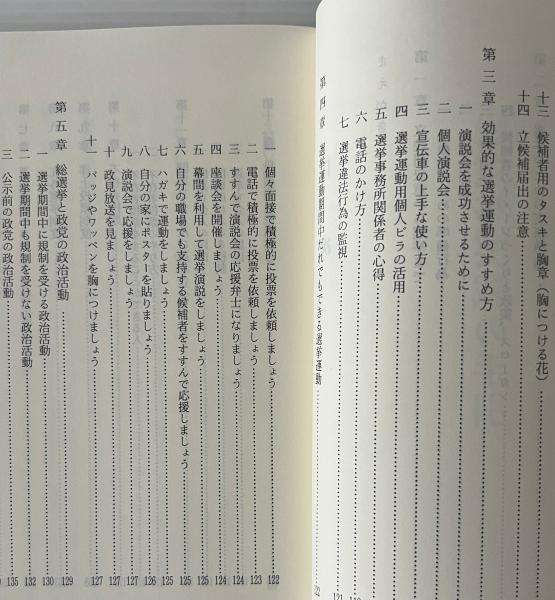 十三 候補者用のタスキと胸章（胸につける花）
十四 立候補届出の注意
第三章 効果的な選挙運動のすすめ方
一 演説会を成功させるために
二 個人演説会
三 宣伝車の上手な使い方
四 選挙運動用個人ビラの活用
五 選挙事務所関係者の心得
六 電話のかけ方
七 選挙違法行為の監視 121
第四章 選挙運動期間中だれでもできる選挙運動 122
一 個々面接で積極的に投票を依頼しましょう 122
二 電話で積極的に投票を依頼しましょう 123
三 すすんで演説会の応援弁士になりましょう 124
四 座談会を開催しましょう 124
五 幕間を利用して選挙演説をしましょう 125
六 自分の職場でも支持する候補者をすすんで応援しましょう 125
七 ハガキで運動をしましょう 125
八 自分の家にポスターを貼りましょう 126
九 演説会で応援をしましょう 127
十 政見放送を見ましょう 127
十一 バッジやワッペンを胸につけましょう 127
第五章 総選挙と政党の政治活動 129
一 選挙期間中に規制を受ける政治活動 130
二 選挙期間中も規制を受けない政治活動 132
三 公示前の政党の政治活動 135